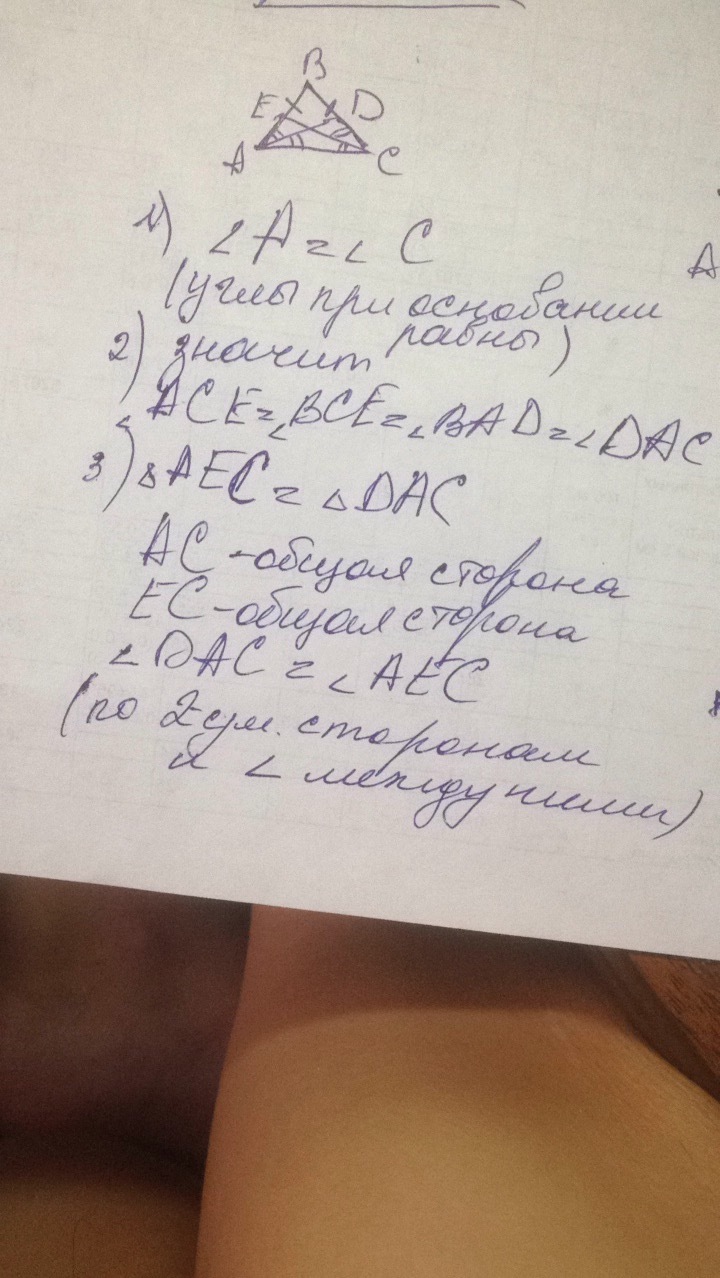 B
E D
A C
1) ∠A = ∠C
(углы при основании
равны)
2) значит
∠ACE = ∠BCE = ∠BAD = ∠DAC
3) △AEC = △DAC
AC - общая сторона
EC - общая сторона
∠DAC = ∠AEC
(по 2-ум. сторонам
и ∠ между ними)
A